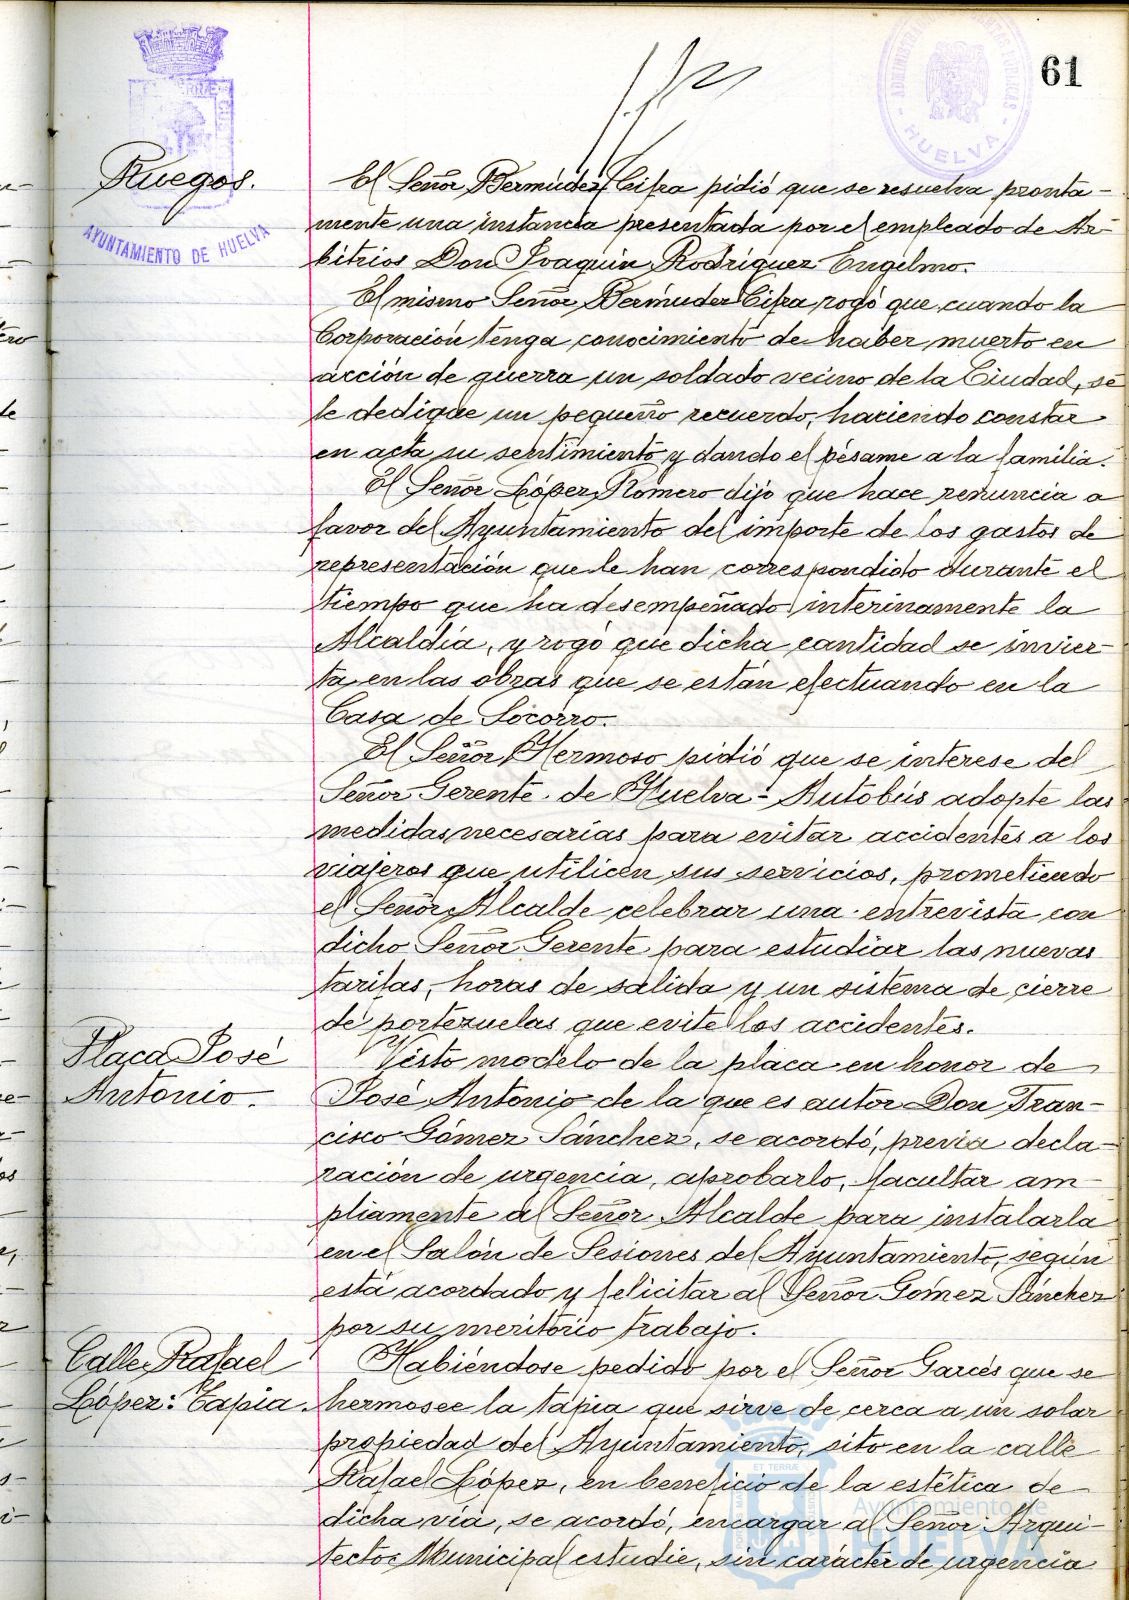 61
HUELVA
AYUNTAMIENTO DE HUELVA
Ruegos.
El Señor Bermúdez Cifra pidió que se resuelva pronta-
mente una instancia presentada por el empleado de Ar-
bitrios Don Joaquín Rodríguez Engelmo.
El mismo Señor Bermúdez Cifra rogó que, cuando la
Corporación tenga conocimiento de haber muerto en
acción de guerra un soldado vecino de la Ciudad, se
le dedique un pequeño recuerdo, haciendo constar
en acta su sentimiento y dando el pésame a la familia.
El Señor López Romero dijo que hace renuncia a
favor del Ayuntamiento del importe de los gastos de
representación que le han correspondido durante el
tiempo que ha desempeñado interinamente la
Alcaldía, y rogó que dicha cantidad se invier-
ta en las obras que se están efectuando en la
Casa de Socorro.
El Señor Hermoso pidió que se interese del
Señor Gerente de Huelva-Autobús adopte las
medidas necesarias para evitar accidentes a los
viajeros que utilicen sus servicios, prometiendo
el Señor Alcalde celebrar una entrevista con
dicho Señor Gerente para estudiar las nuevas
tarifas, horas de salida y un sistema de cierre
de portezuelas que evite los accidentes.
Placa José
Antonio.
Visto modelo de la placa en honor de
José Antonio de la que es autor Don Fran-
cisco Gómez Sánchez, se acordó, previa decla-
ración de urgencia, aprobarlo, facultar am-
pliamente al Señor Alcalde para instalarla
en el Salón de Sesiones del Ayuntamiento, según
está acordado y felicitar al Señor Gómez Sánchez
por su meritorio trabajo.
Calle Rafael
López: Tapia.
Habiéndose pedido por el Señor Garcés que se
hermosee la tapia que sirve de cerca a un solar
propiedad del Ayuntamiento, sito en la calle
Rafael López, en beneficio de la estética de
dicha vía, se acordó, encargar al Señor Arqui-
tecto Municipal estudie, sin carácter de urgencia
Ayuntamiento de
HUELVA